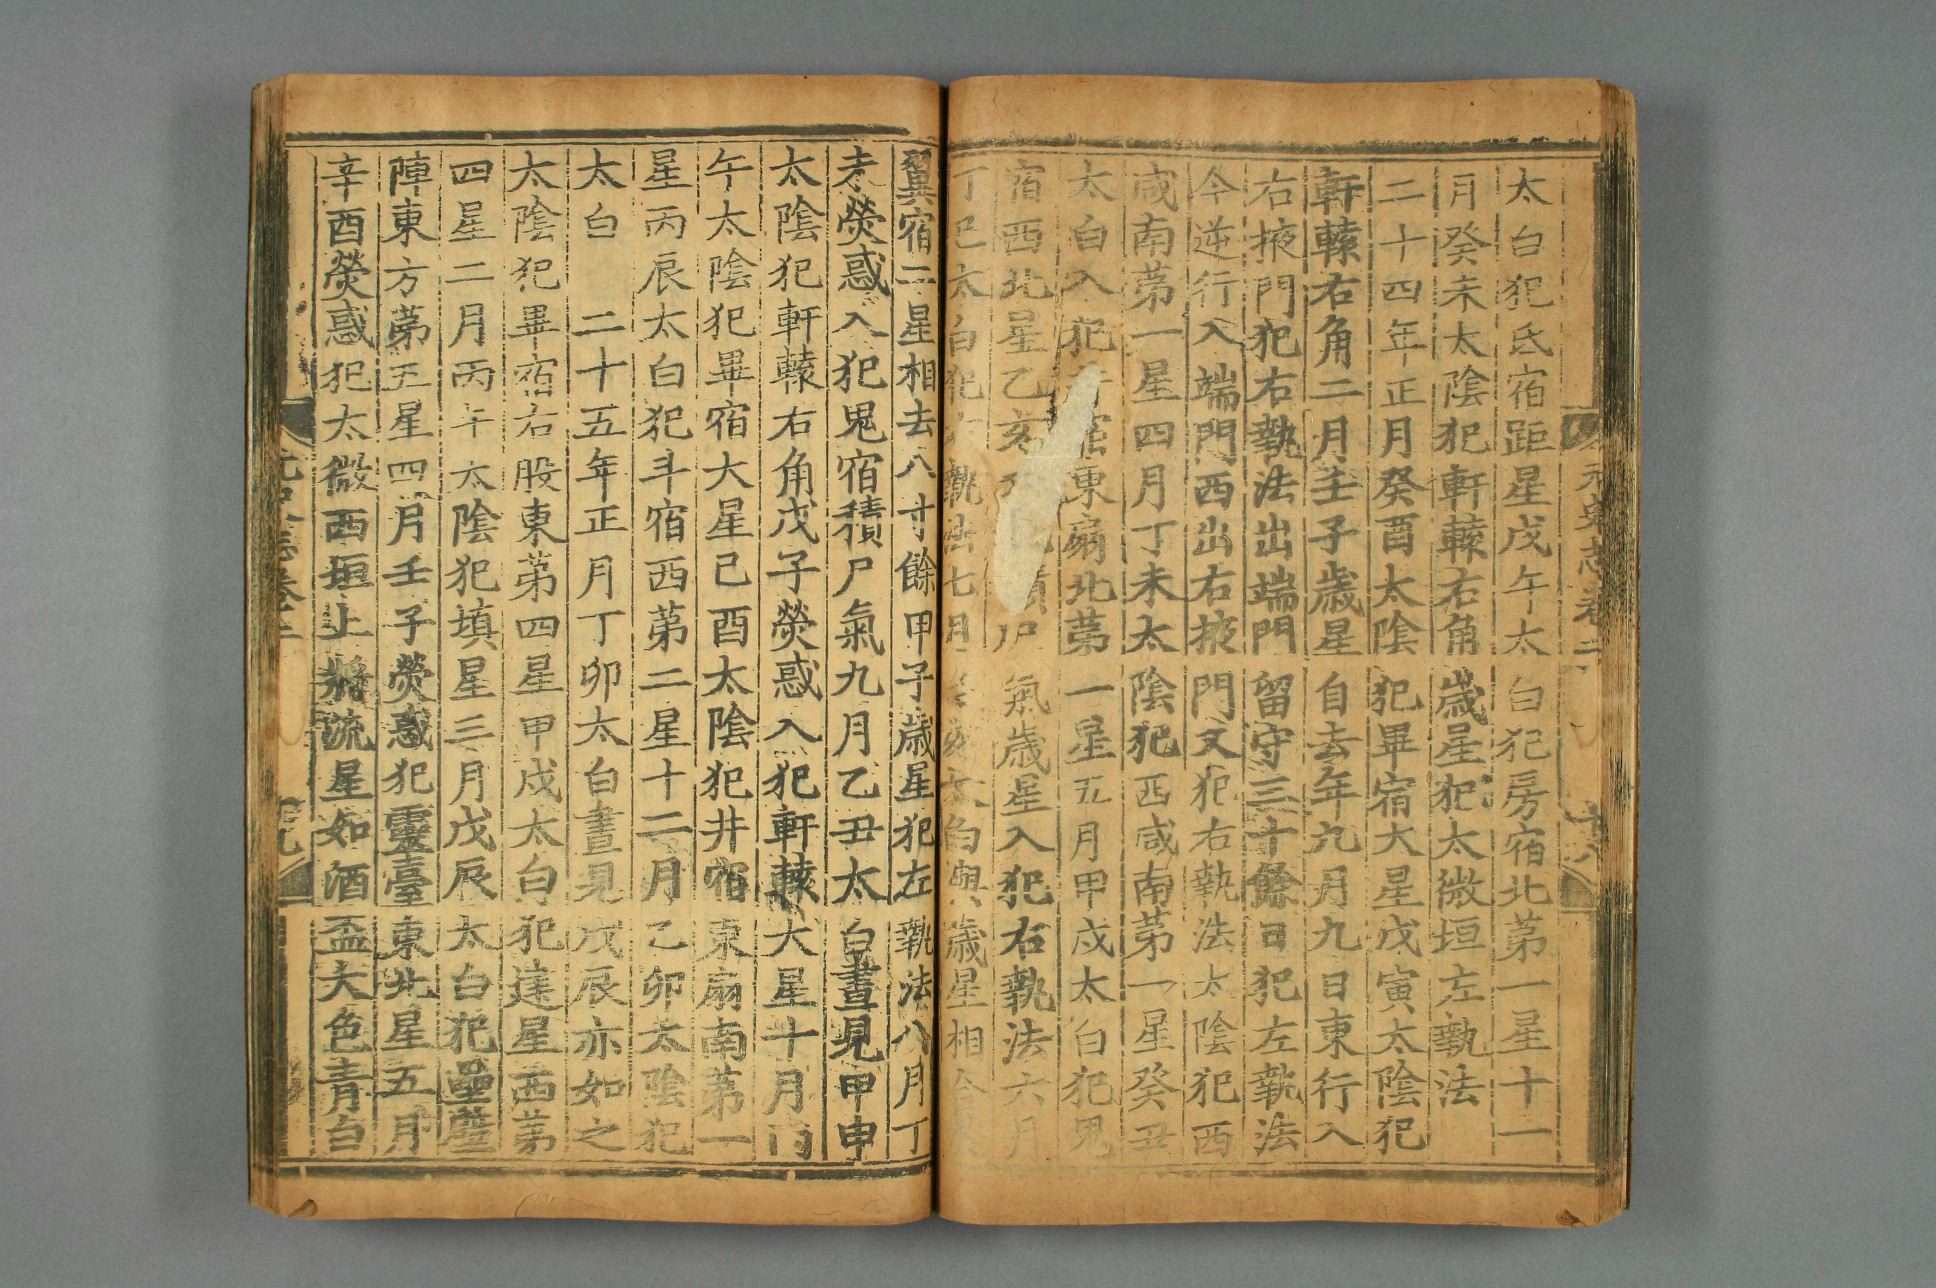 太白犯氐宿距星戊午太白犯房宿北第一星十一
月癸未太陰犯軒轅右角歲星犯太微垣左執法
二十四年正月癸酉太陰犯畢宿大星戊寅太陰犯
軒轅右角二月壬子歲星自去年九月九日東行入
右掖門犯右執法出端門留守三十餘日犯左執法
今逆行入端門西出右掖門又犯右執法太陰犯西
咸南第一星四月丁未太陰犯西咸南第一星癸丑
太白入犯東扇北第一星五月甲戌太白犯鬼
宿西北星乙亥積尸氣歲星入犯右執法六月
丁巳太白犯右執法七月太白與歲星相
翼宿二星相去八寸餘甲子歲星犯左執法八月丁
未熒惑入犯鬼宿積尸氣九月乙丑太白晝見甲申
太陰犯軒轅右角戊子熒惑入犯軒轅大星十月丙
午太陰犯畢宿大星己酉太陰犯井宿東扇南第一
星丙辰太白犯斗宿西第二星十二月乙卯太陰犯
太白 二十五年正月丁卯太白晝見戊辰亦如之
太陰犯畢宿右股東第四星甲戌太白犯建星西第
四星二月丙午太陰犯填星三月戊辰太白犯壘壁
陣東方第五星四月壬子熒惑犯靈臺東北星五月
辛酉熒惑犯太微西垣上將流星如酒盃大色青白
元史志卷二 十八
元史志卷二 十九